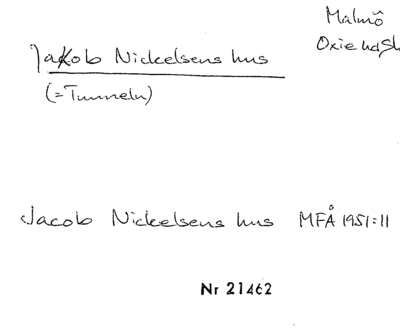 Malmö
Jakob Nickelsens hus
Oxie hdsk
(=Tunneln)
Jacob Nickelsens hus MFÅ 1951:11
Nr 21462